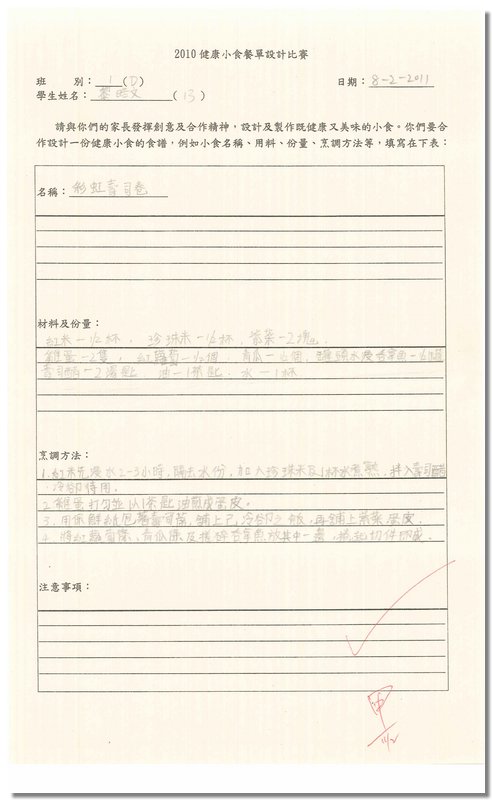 2010 健康小食餐單設計比賽
班 別：1(D) 日期：8-2-2011
學生姓名：黎 文 (13)
請與你們的家長發揮創意及合作精神，設計及製作既健康又美味的小食。你們要合
作設計一份健康小食的食譜，例如小食名稱、用料、份量、烹調方法等，填寫在下表：
名稱：彩虹壽司卷
材料及份量：
紅米－1/2杯， 珍珠米－1/2杯，紫菜－2塊。
雞蛋－2隻， 紅蘿蔔－1/2個，青瓜－ 個，罐頭水浸吞拿魚－ 罐
壽司醋－2湯匙、油－1茶匙、水－1杯
烹調方法：
1. 紅米先浸水2-3小時，隔去水份，加入珍珠米及1杯水煮熟，拌入壽司醋
冷卻待用。
2. 雞蛋打勻並以1茶匙油煎成蛋皮。
3. 用保鮮紙包著壽司蓆，鋪上已冷卻之飯，再鋪上紫菜、蛋皮。
4. 將紅蘿蔔條、青瓜條及 吞拿魚放其中一邊，捲起切件即成。
注意事項：
甲
11/2